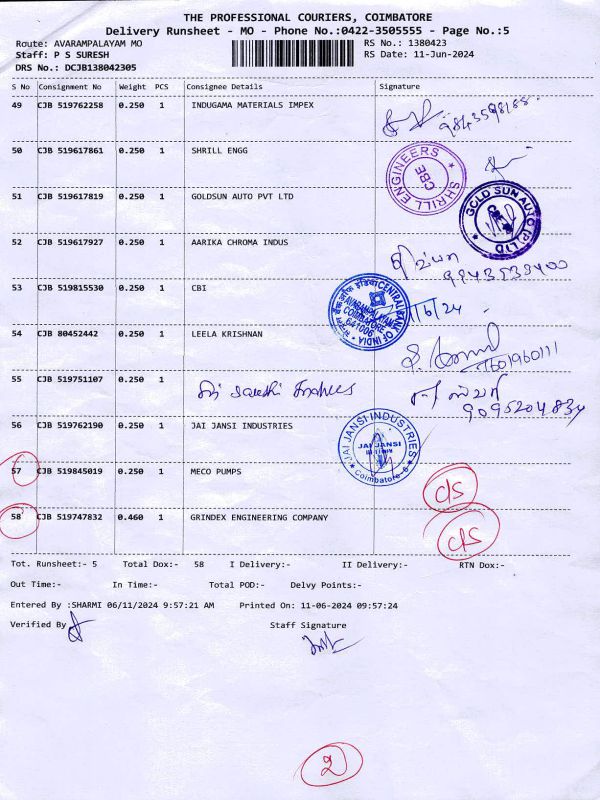 THE PROFESSIONAL COURIERS, COIMBATORE
Delivery Runsheet - MO - Phone No.:0422-3505555 - Page No.:5
Route: AVARAMPALAYAM MO RS No.: 1380423
Staff: P S SURESH RS Date: 11-Jun-2024
DRS No.: DCJB138042305
S No Consignment No Weight PCS Consignee Details Signature
49 CJB 519762258 0.250 1 INDUGAMA MATERIALS IMPEX
50 CJB 519617861 0.250 1 SHRILL ENGG
SHRILL ENGINEERS CBE
51 CJB 519617819 0.250 1 GOLDSUN AUTO PVT LTD
GOLD SUN AUTO (P) LTD
52 CJB 519617927 0.250 1 AARIKA CHROMA INDUS
53 CJB 519815530 0.250 1 CBI
CENTRAL BANK OF INDIA
AVARAMPALAYAM
COIMBATORE
641006
/6/24
54 CJB 80452442 0.250 1 LEELA KRISHNAN
55 CJB 519751107 0.250 1
9095204834
56 CJB 519762190 0.250 1 JAI JANSI INDUSTRIES
JAI JANSI INDUSTRIES
JAI JANSI
Coimbatore-6
57 CJB 519845019 0.250 1 MECO PUMPS c/s
58 CJB 519747832 0.460 1 GRINDEX ENGINEERING COMPANY c/s
Tot. Runsheet:- 5 Total Dox:- 58 I Delivery:- II Delivery:- RTN Dox:-
Out Time:- In Time:- Total POD:- Delvy Points:-
Entered By :SHARMI 06/11/2024 9:57:21 AM Printed On: 11-06-2024 09:57:24
Verified By Staff Signature
2